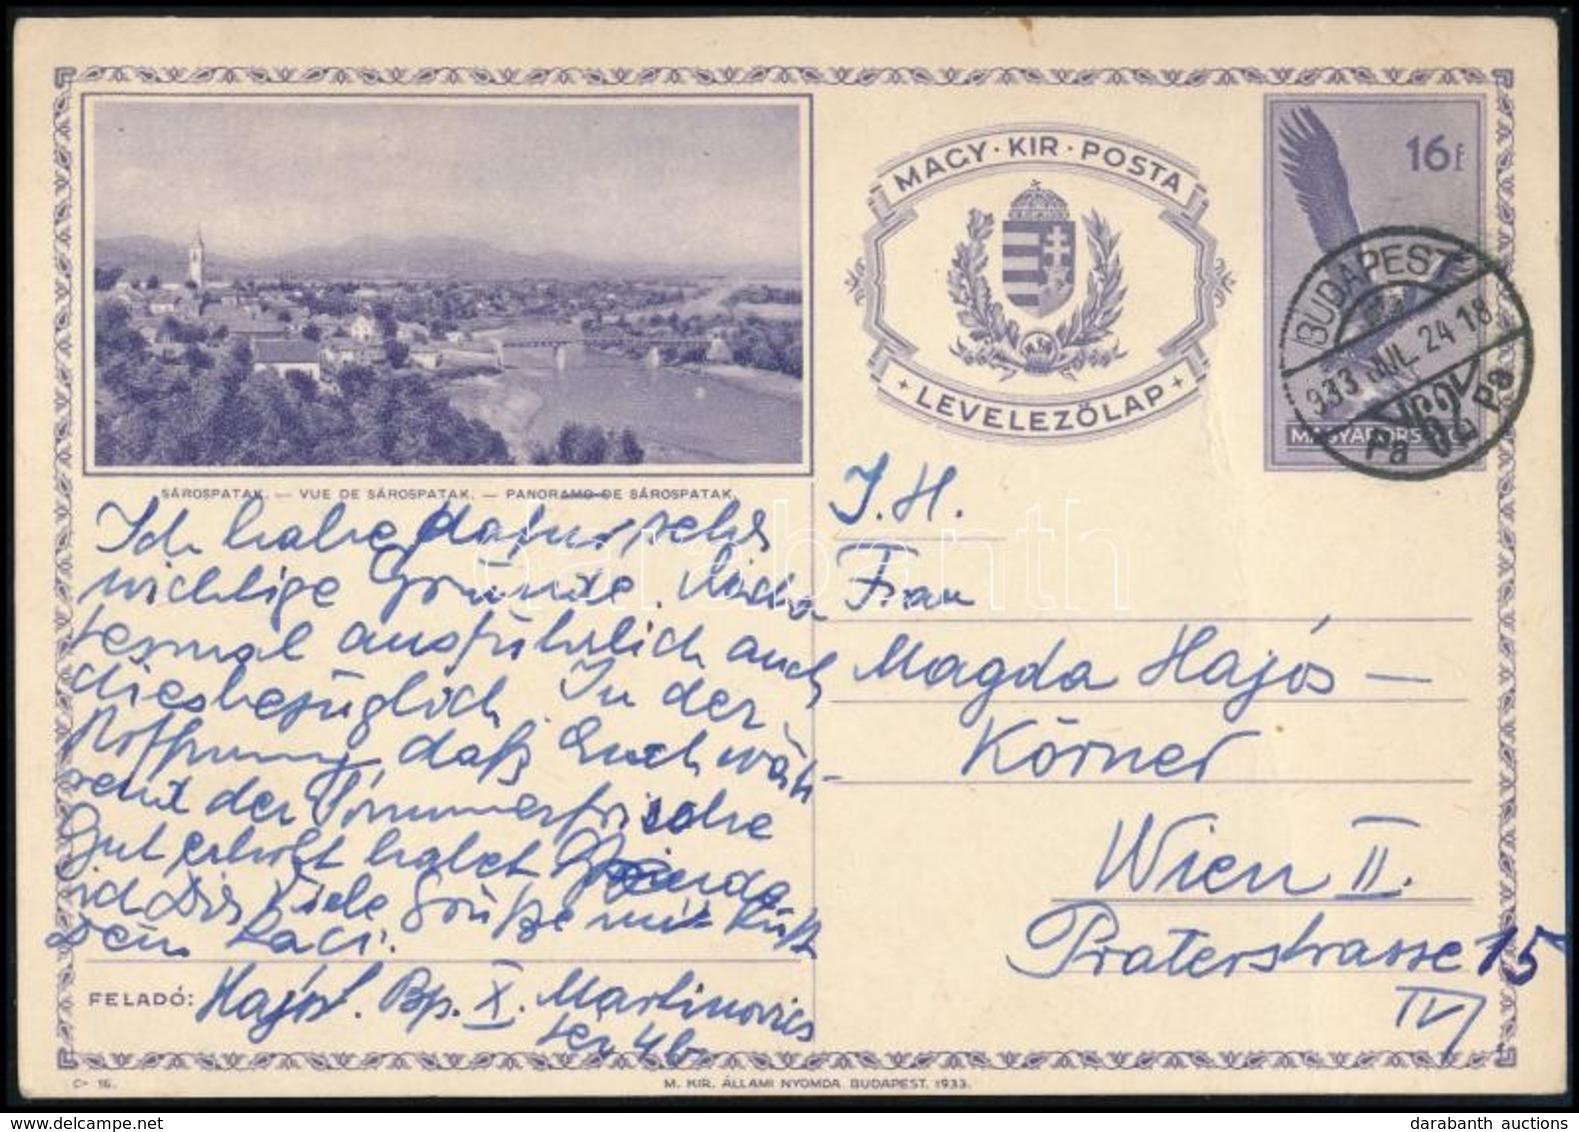 MAGY · KIR · POSTA
LEVELEZŐLAP
16 f
MAGYARORSZÁG
BUDAPEST
933 JUL. 24 18
SÁROSPATAK. — VUE DE SÁROSPATAK. — PANORAMO DE SÁROSPATAK.
Ich habe dafür sehr
wichtige Gründe.
ausführlich auch
diesbezüglich. In der
Hoffnung, daß Euch wäh-
rend der Sommerfrische
Gut erholt habet
ich Dir Viele Grüße mit Kuß
Dein Laci.
FELADÓ: Hajós L. Bp. X. Martinovics
tér 4b
I. H.
Frau
Magda Hajós —
Körner
Wien II.
Praterstrasse 15
IV/
C- 16.
M. KIR. ÁLLAMI NYOMDA. BUDAPEST. 1933.
darabanth
darabanth auctions
delcampe.net